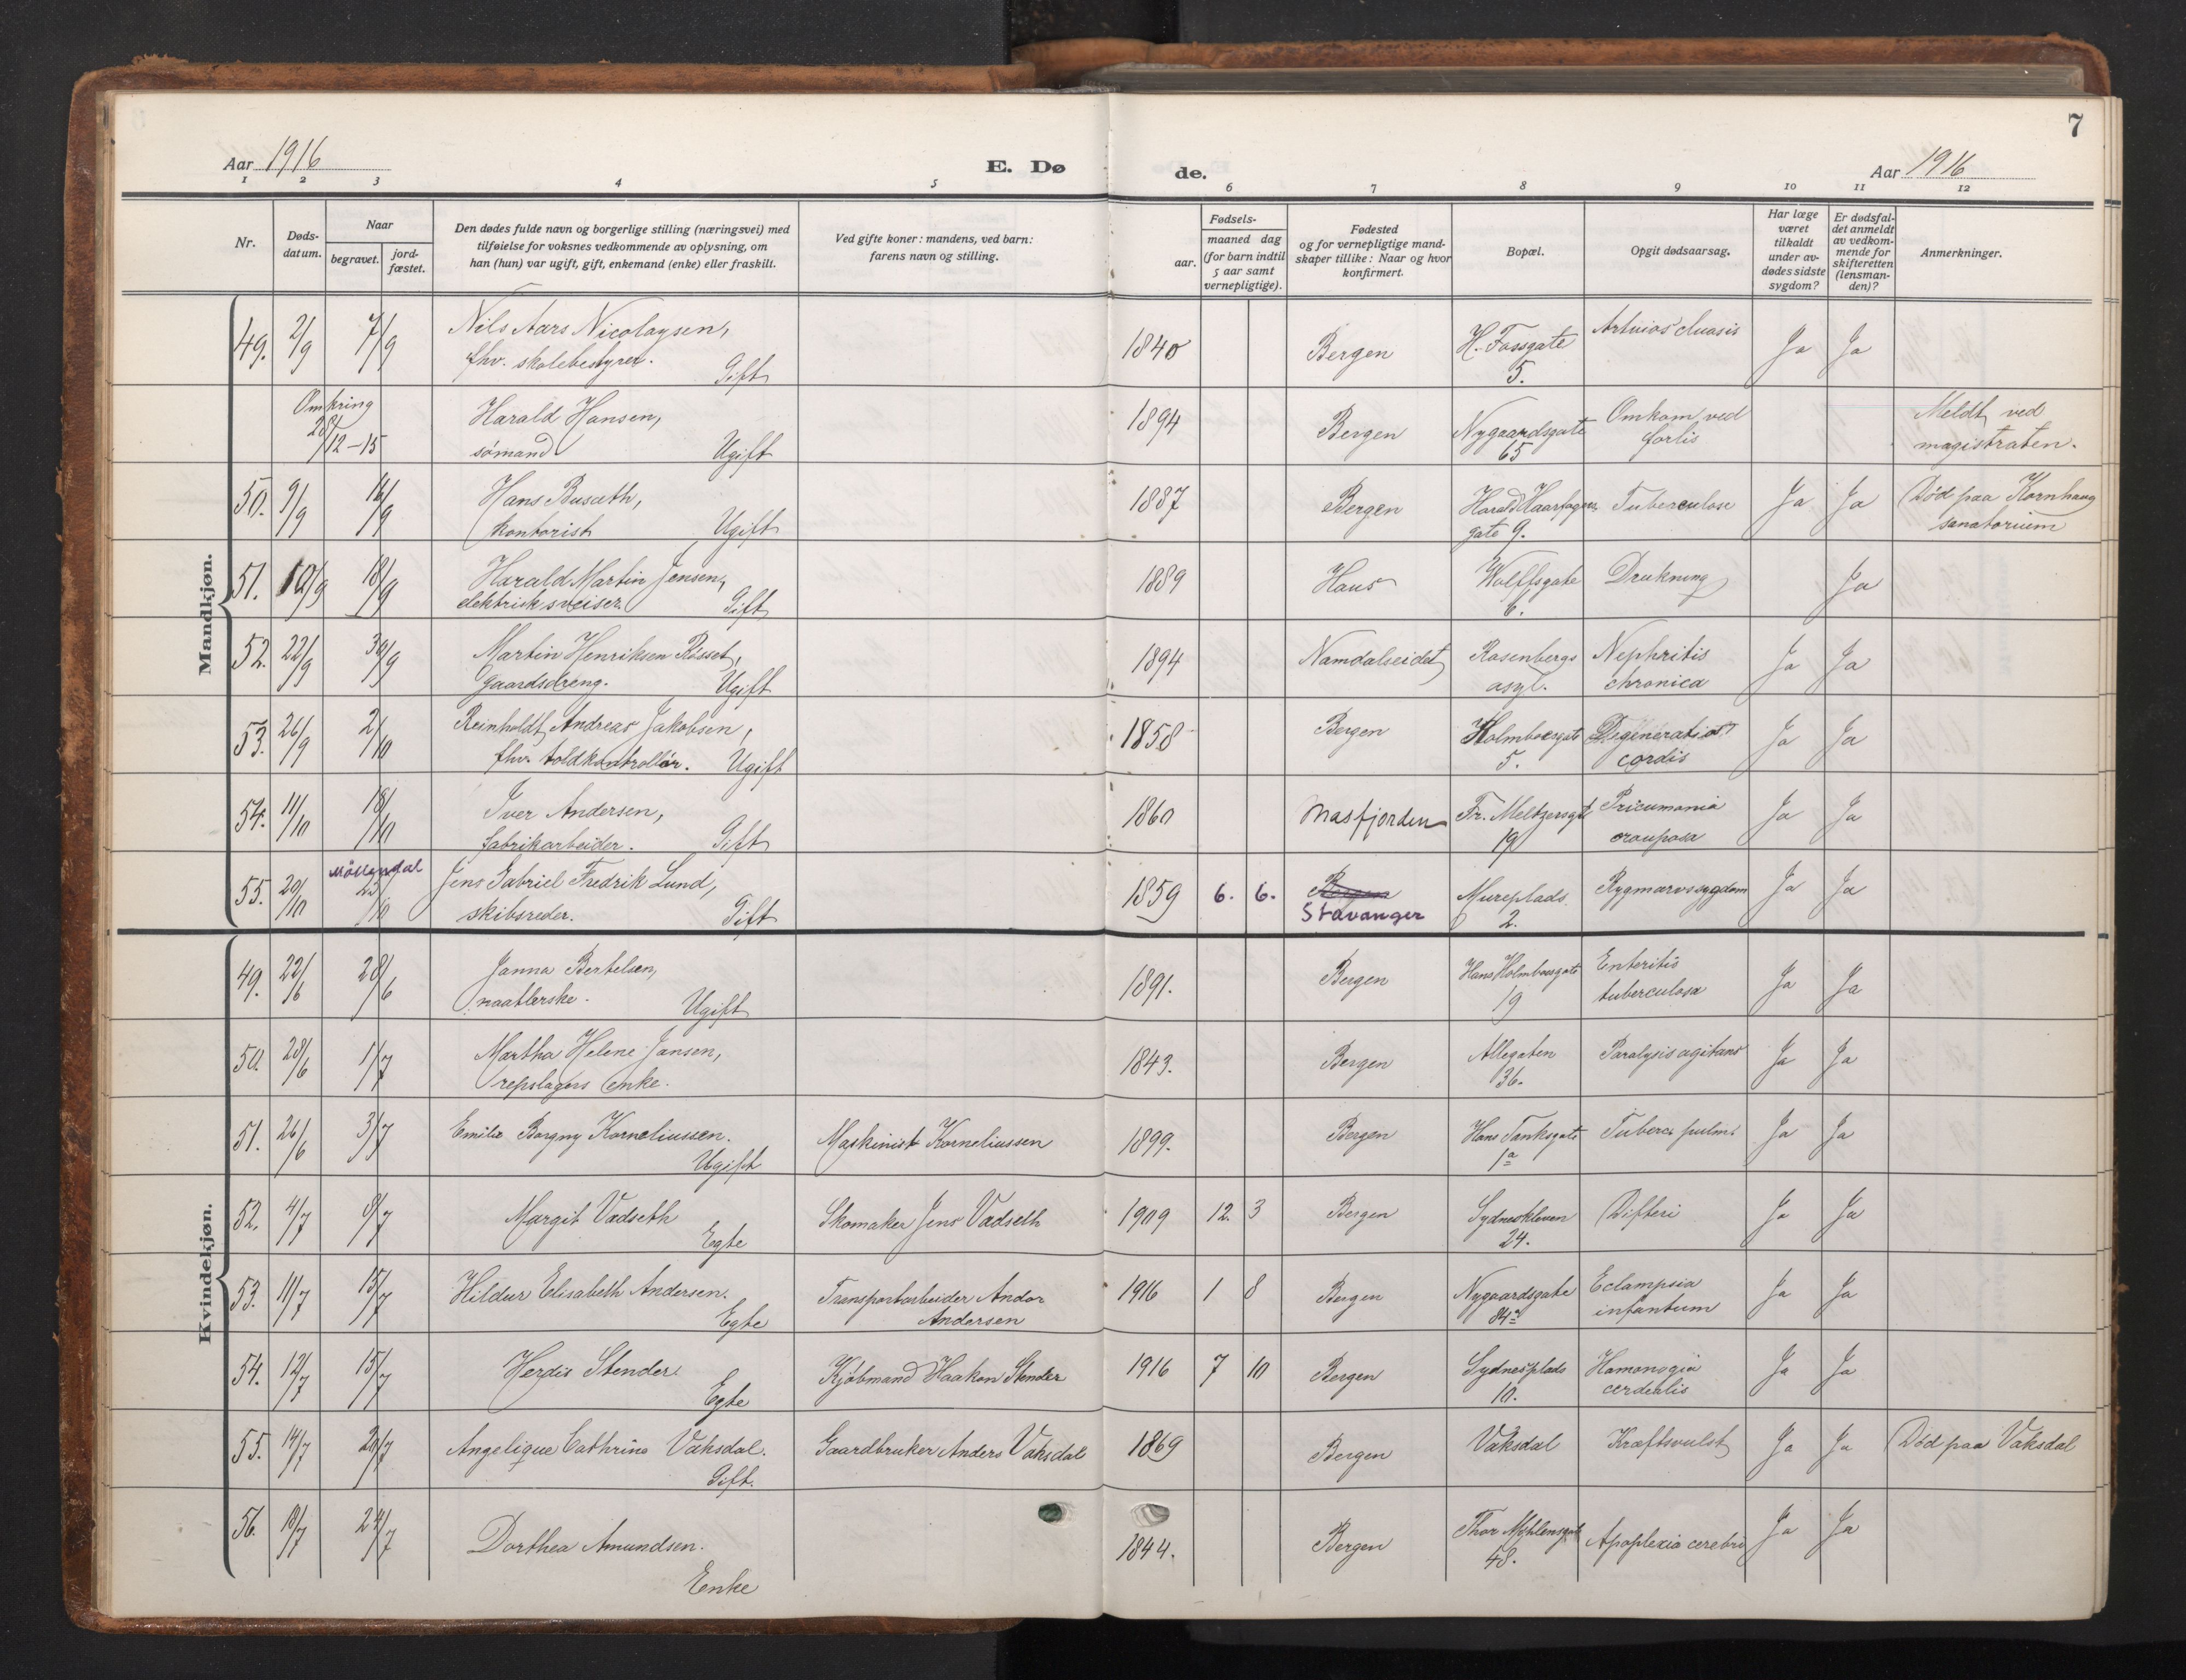 7
Aar 1916
E. Dø
de.
Aar 1916
1 2 3 4 5 6 7 8 9 10 11 12
Nr.
Døds-
datum.
Naar
begravet.
jord-
fæstet.
Den dødes fulde navn og borgerlige stilling (næringsvei) med
tilføielse for voksnes vedkommende av oplysning, om
han (hun) var ugift, gift, enkemand (enke) eller fraskilt.
Ved gifte koner: mandens, ved barn:
farens navn og stilling.
Fødsels-
aar.
maaned dag
(for barn indtil
5 aar samt
vernepligtige).
Fødested
og for vernepligtige mand-
skaper tillike: Naar og hvor
konfirmert.
Bopæl.
Opgit dødsaarsag.
Har læge
været
tilkaldt
under av-
dødes sidste
sygdom?
Er dødsfal-
det anmeldt
av vedkom-
mende for
skifteretten
(lensman-
den)?
Anmerkninger.
Mandkjøn.
49. 2/9 7/9 Nils Aars Nicolaysen, 1840 Bergen H. Fossgate Ja Ja
fhv. skolebestyrer. Gift 5.
Omkring Harald Hansen, 1894 Bergen Nygaardsgate Omkom ved Meldt ved
28/12-15 sømand Ugift 65 forlis magistraten.
50. 9/9 16/9 Hans Busæth, 1887 Bergen Harald Haarfagres Tuberculose Ja Ja Død paa Kornhaug
kontorist Ugift gate 9. sanatorium
51. 10/9 18/9 Harald Martin Jensen, 1889 Haus Wolffsgate Drukning Ja
elektrisk sveiser Gift 6.
52. 22/9 30/9 Martin Henriksen Røsset, 1894 Namdalseidet Rosenbergs Nephritis Ja Ja
gaardsdreng. Ugift asyl. chronica
53. 26/9 2/10 Reinholdt Andreas Jakobsen, 1858 Bergen Holmboesgate Degeneratio Ja Ja
fhv. toldkontrollør. Ugift 5. cordis
54. 11/10 18/10 Iver Andersen, 1860 Masfjorden Fr. Meltzersgt Pneumonia Ja Ja
fabrikarbeider. Gift 19 crouposa
Møllendal
55. 20/10 25/10 Jens Gabriel Fredrik Lund, 1859 6. 6. Bergen Mureplads Rygmarvssygdom Ja Ja
skibsreder. Gift Stavanger 2.
Kvindekjøn.
49. 22/6 28/6 Janna Bertelsen, 1891. Bergen Hans Holmboesgate Enteritis Ja Ja
naatlerske. Ugift 19 tuberculosa
50. 28/6 1/7 Martha Helene Jansen, 1843. Bergen Allegaten Paralysis agitans Ja Ja
repslagers enke. 36.
51. 26/6 3/7 Emilie Borgny Korneliussen. Maskinist Korneliussen 1899. Bergen Hans Tanksgate Tuberc. pulm. Ja Ja
Ugift 1a
52. 4/7 8/7 Margit Vadseth Skomaker Jens Vadseth 1909 12. 3 Bergen Sydneskleven Difteri Ja Ja
Egte 24.
53. 11/7 15/7 Hildur Elisabeth Andersen. Transportarbeider Andor 1916 1 8 Bergen Nygaardsgate Eclampsia Ja Ja
Egte Andersen 84a infantum
54. 12/7 15/7 Herdis Stender. Kjøbmand Haakon Stender 1916 7 10 Bergen Sydnesplads Ja Ja
Egte 10.
55. 14/7 20/7 Angelique Cathrine Vaksdal. Gaardbruker Anders Vaksdal 1869 Bergen Vaksdal Kræftsvulst Ja Ja Død paa Vaksdal
Gift.
56. 18/7 24/7 Dorthea Amundsen. 1844. Bergen Thor Møhlensgate Apoplexia cerebri Ja Ja
Enke 48.